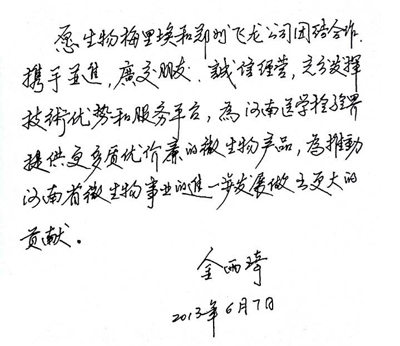 愿生物梅里埃和郑州飞龙公司团结合作.
携手并進，廣交朋友.誠信经营，充分发挥
技術优势和服务平台，為河南医学检验界
提供更多质优价廉的微生物产品，為推動
河南省微生物事业的進一步发展做出更大的
贡献。
金西琦
2013年6月7日